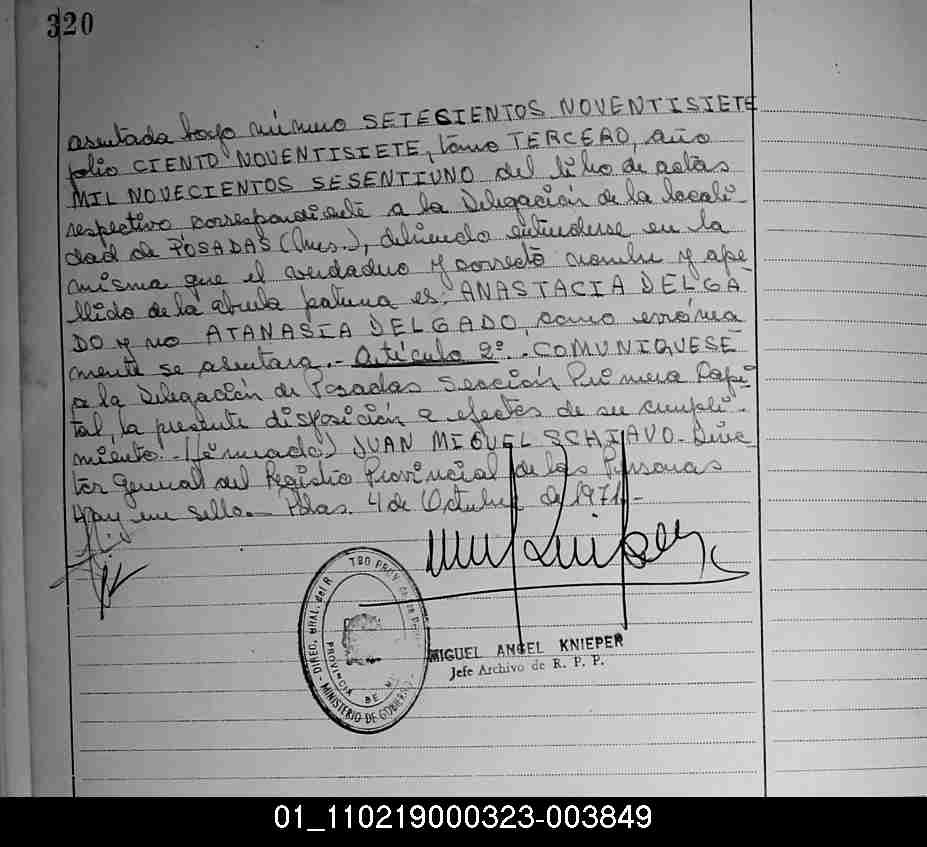 320
asentada bajo número SETESIENTOS NOVENTISIETE
folio CIENTO NOVENTISIETE, tomo TERCERO, año
MIL NOVECIENTOS SESENTIUNO del libro de actas
respectivo correspondiente a la Delegación de la locali-
dad de POSADAS (Mnes.), debiendo entenderse en la
misma que el verdadero y correcto nombre y ape
llido de la abuela paterna es, ANASTACIA DELGA
DO y no ATANASIA DELGADO, como errónea
mente se asentara.- Artículo 2º. COMUNIQUESE
a la Delegación de Posadas Sección Primera Capi
tal, la presente disposición a efectos de su cumpli-
miento.- (Firmado) JUAN MIGUEL SCHIAVO - Direc
tor General del Registro Provincial de las Personas
Hay un sello.- Pdas. 4 de Octubre de 1971.-
DIREC. GRAL. del R TRO PROV
PROVINCIA DE
MINISTERIO DE GOBIERNO
MIGUEL ANGEL KNIEPER
Jefe Archivo de R. P. P.
01_110219000323-003849